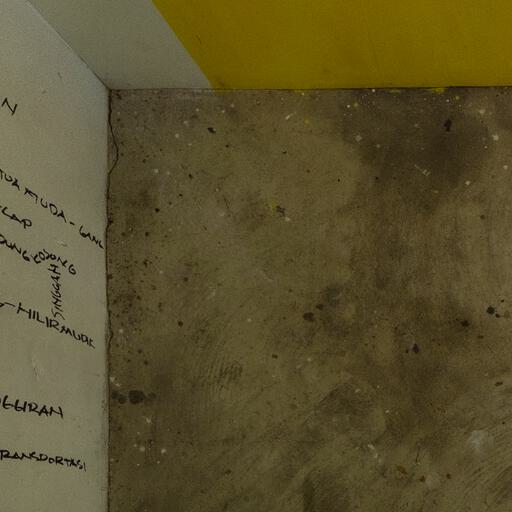 N
TUA MUDA - GANG
CAP
KOSONG
SINGGAH
HILIRMUDIK
GGIRAN
RANSPORTASI